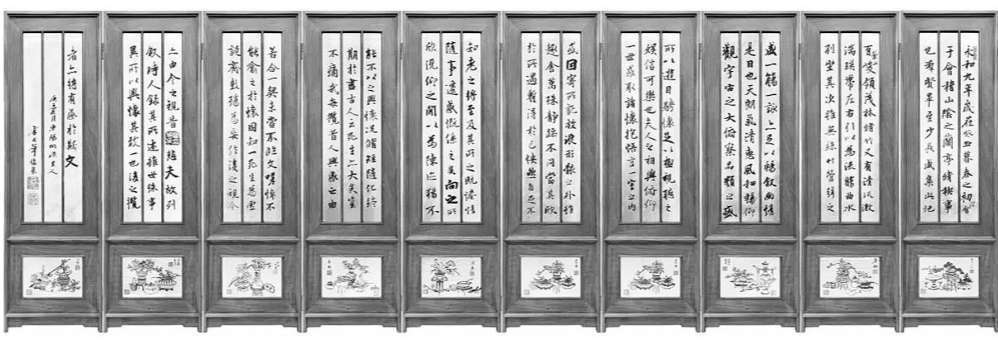 永和九年歲在癸丑暮春之初會
于會稽山陰之蘭亭脩禊事
也羣賢畢至少長咸集此地
有崇領茂林脩竹又有清流激
湍暎帶左右引以為流觴曲水
列坐其次雖無絲竹管弦之
盛一觴一詠亦足以暢敘幽情
是日也天朗氣清惠風和暢仰
觀宇宙之大俯察品類之盛
所以遊目騁懷足以極視聽之
娛信可樂也夫人之相與俯仰
一世或取諸懷抱悟言一室之內
或因寄所託放浪形骸之外雖
趣舍萬殊靜躁不同當其欣
於所遇暫得於己怏然自足不
知老之將至及其所之既惓情
隨事遷感慨係之矣向之所
欣俛仰之閒以為陳迹猶不
能不以之興懷況脩短隨化終
期於盡古人云死生亦大矣豈
不痛哉每攬昔人興感之由
若合一契未嘗不臨文嗟悼不
能喻之於懷固知一死生為虛
誕齊彭殤為妄作後之視今
亦由今之視昔悲夫故列
敘時人錄其所述雖世殊事
異所以興懷其致一也後之攬
者亦將有感於斯文